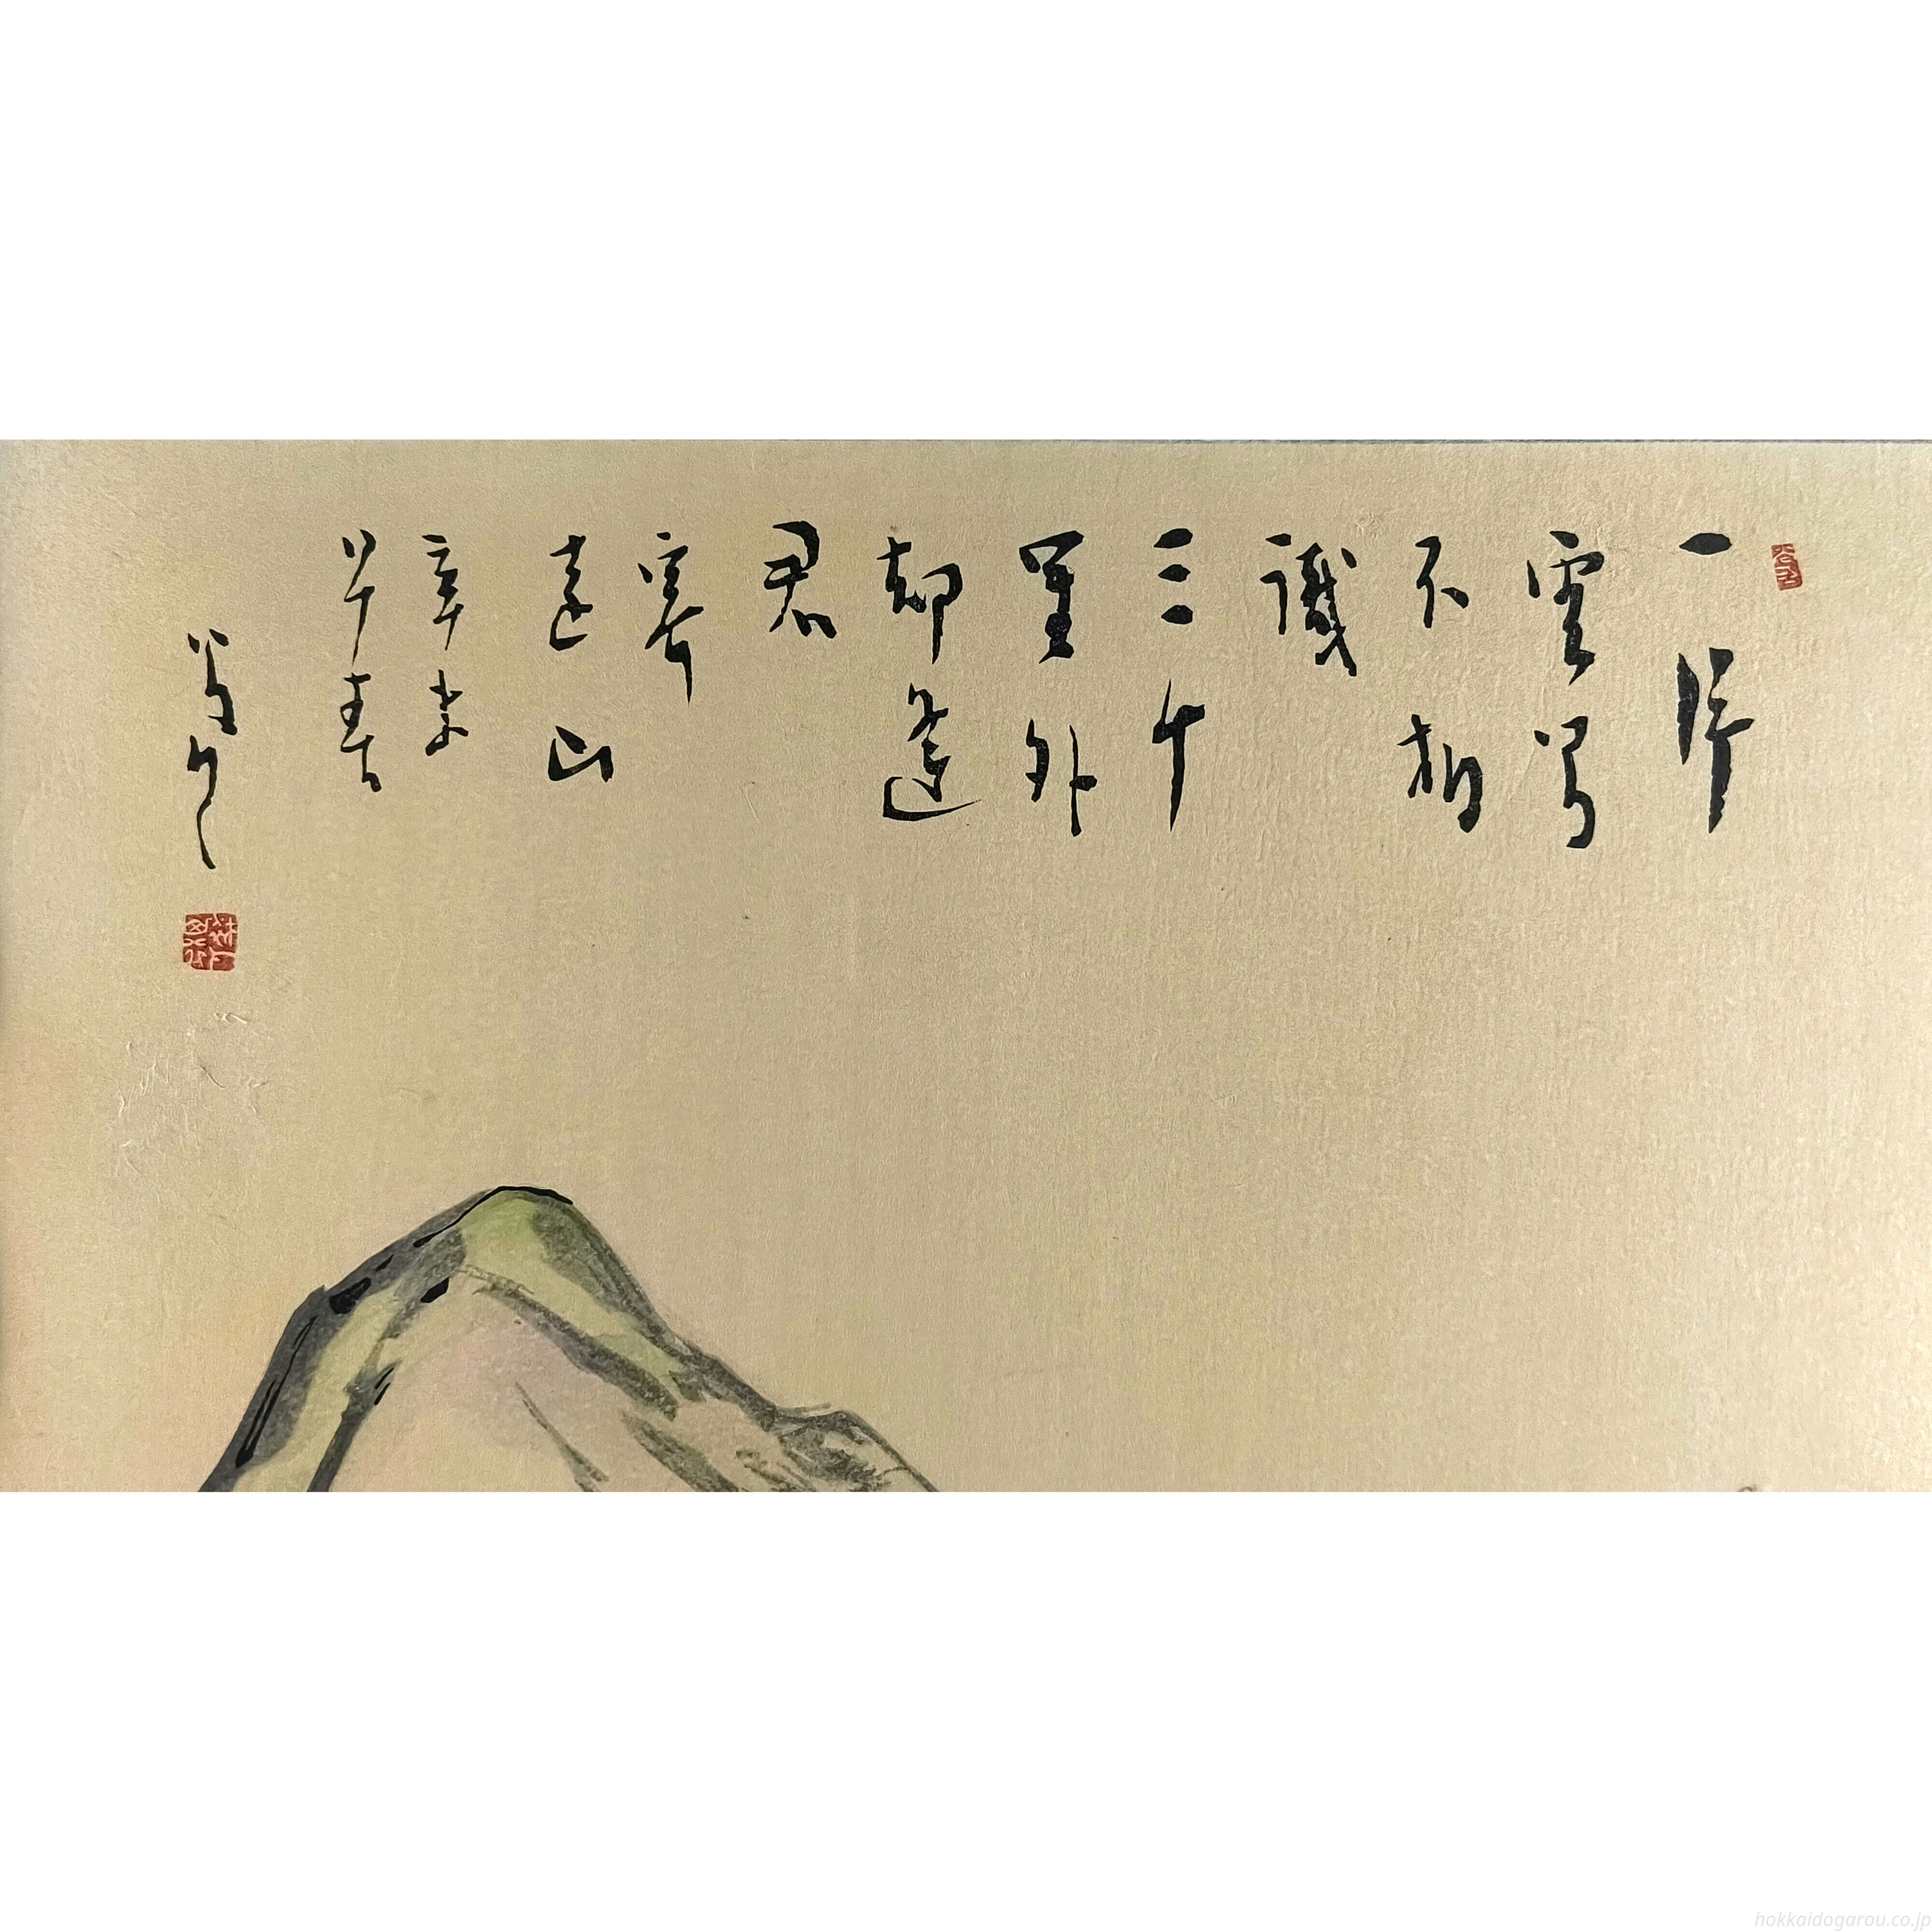 一
雲
不相
識
三千
里外
却逢
君
寄
遠山
辛未
早春
hokkaidogarou.co.jp